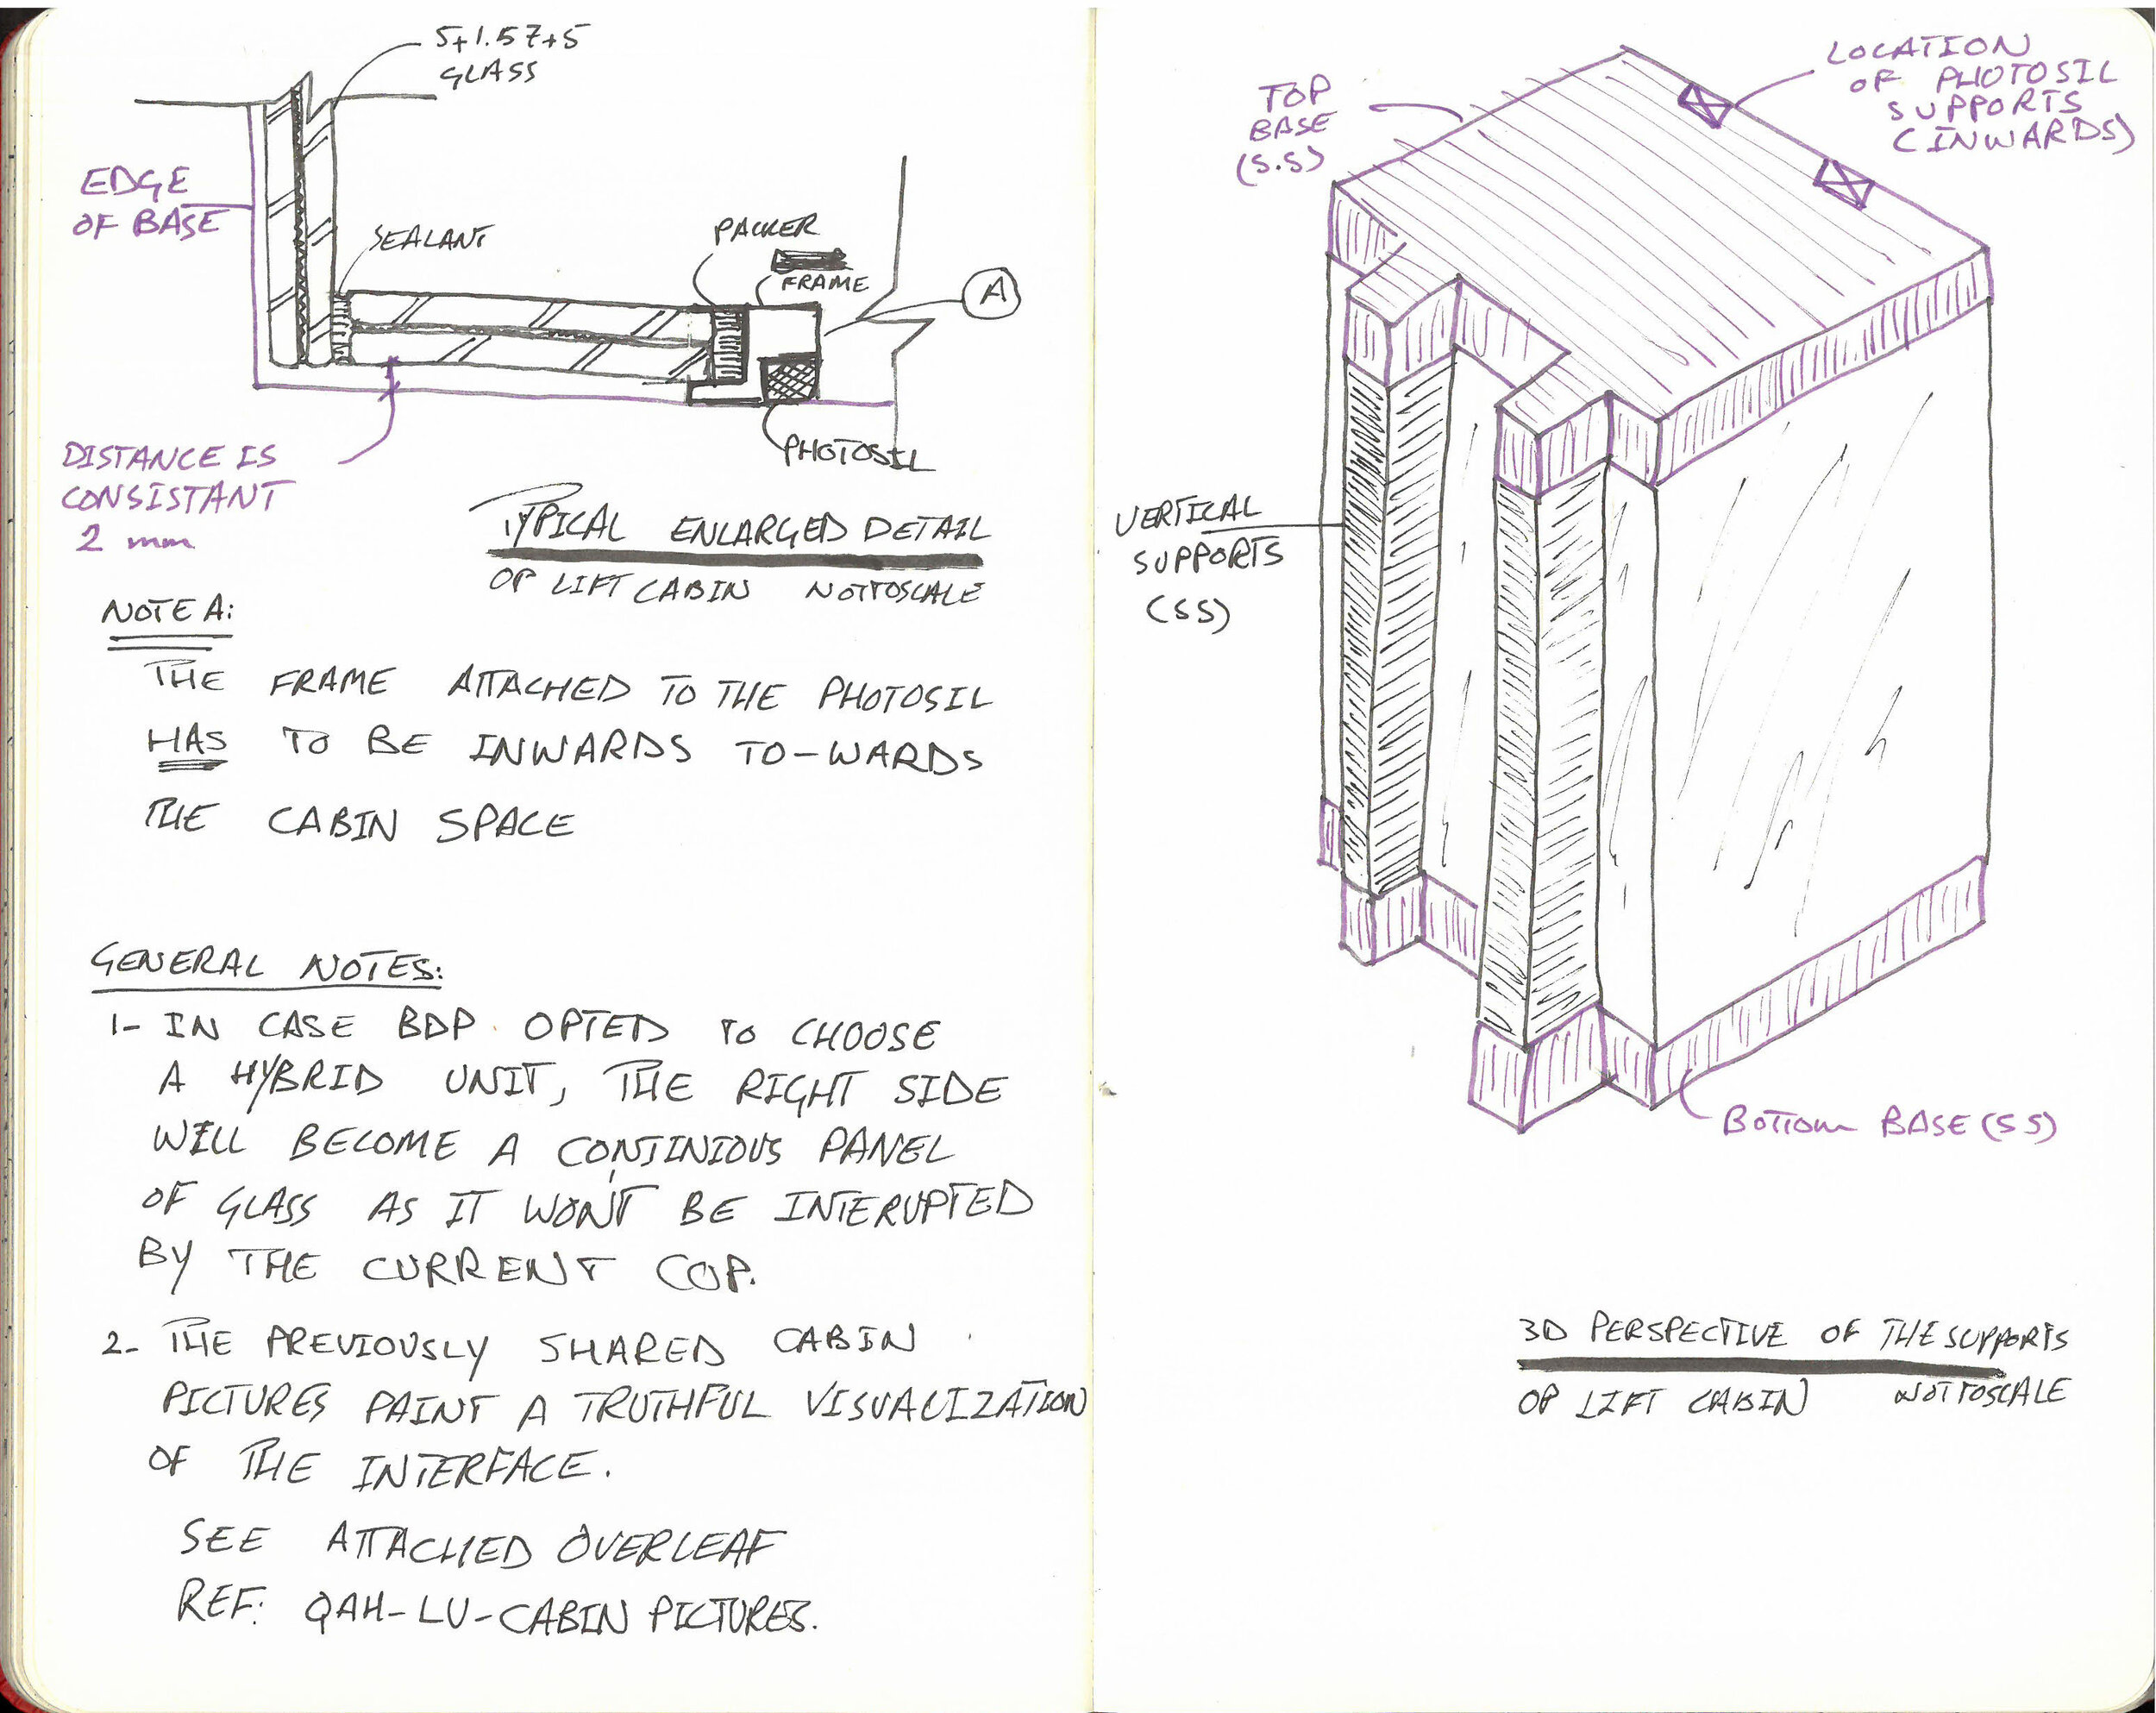 5+1.57+5
GLASS
EDGE
OF BASE
SEALANT
PACKER
FRAME
A
PHOTOSIL
DISTANCE IS
CONSISTANT
2 mm
TYPICAL ENLARGED DETAIL
OF LIFT CABIN NOT TO SCALE
NOTE A:
THE FRAME ATTACHED TO THE PHOTOSIL
HAS TO BE INWARDS TO-WARDS
THE CABIN SPACE
GENERAL NOTES:
1- IN CASE BDP OPTED TO CHOOSE
A HYBRID UNIT, THE RIGHT SIDE
WILL BECOME A CONTINIOUS PANEL
OF GLASS AS IT WON'T BE INTERUPTED
BY THE CURRENT COP.
2- THE PREVIOUSLY SHARED CABIN
PICTURES PAINT A TRUTHFUL VISUALIZATION
OF THE INTERFACE.
SEE ATTACHED OVERLEAF
REF: QAH-LU-CABIN PICTURES.
TOP
BASE
(S.S)
LOCATION
OF PHOTOSIL
SUPPORTS
(INWARDS)
VERTICAL
SUPPORTS
(SS)
BOTTOM BASE (SS)
3D PERSPECTIVE OF THE SUPPORTS
OF LIFT CABIN NOT TO SCALE